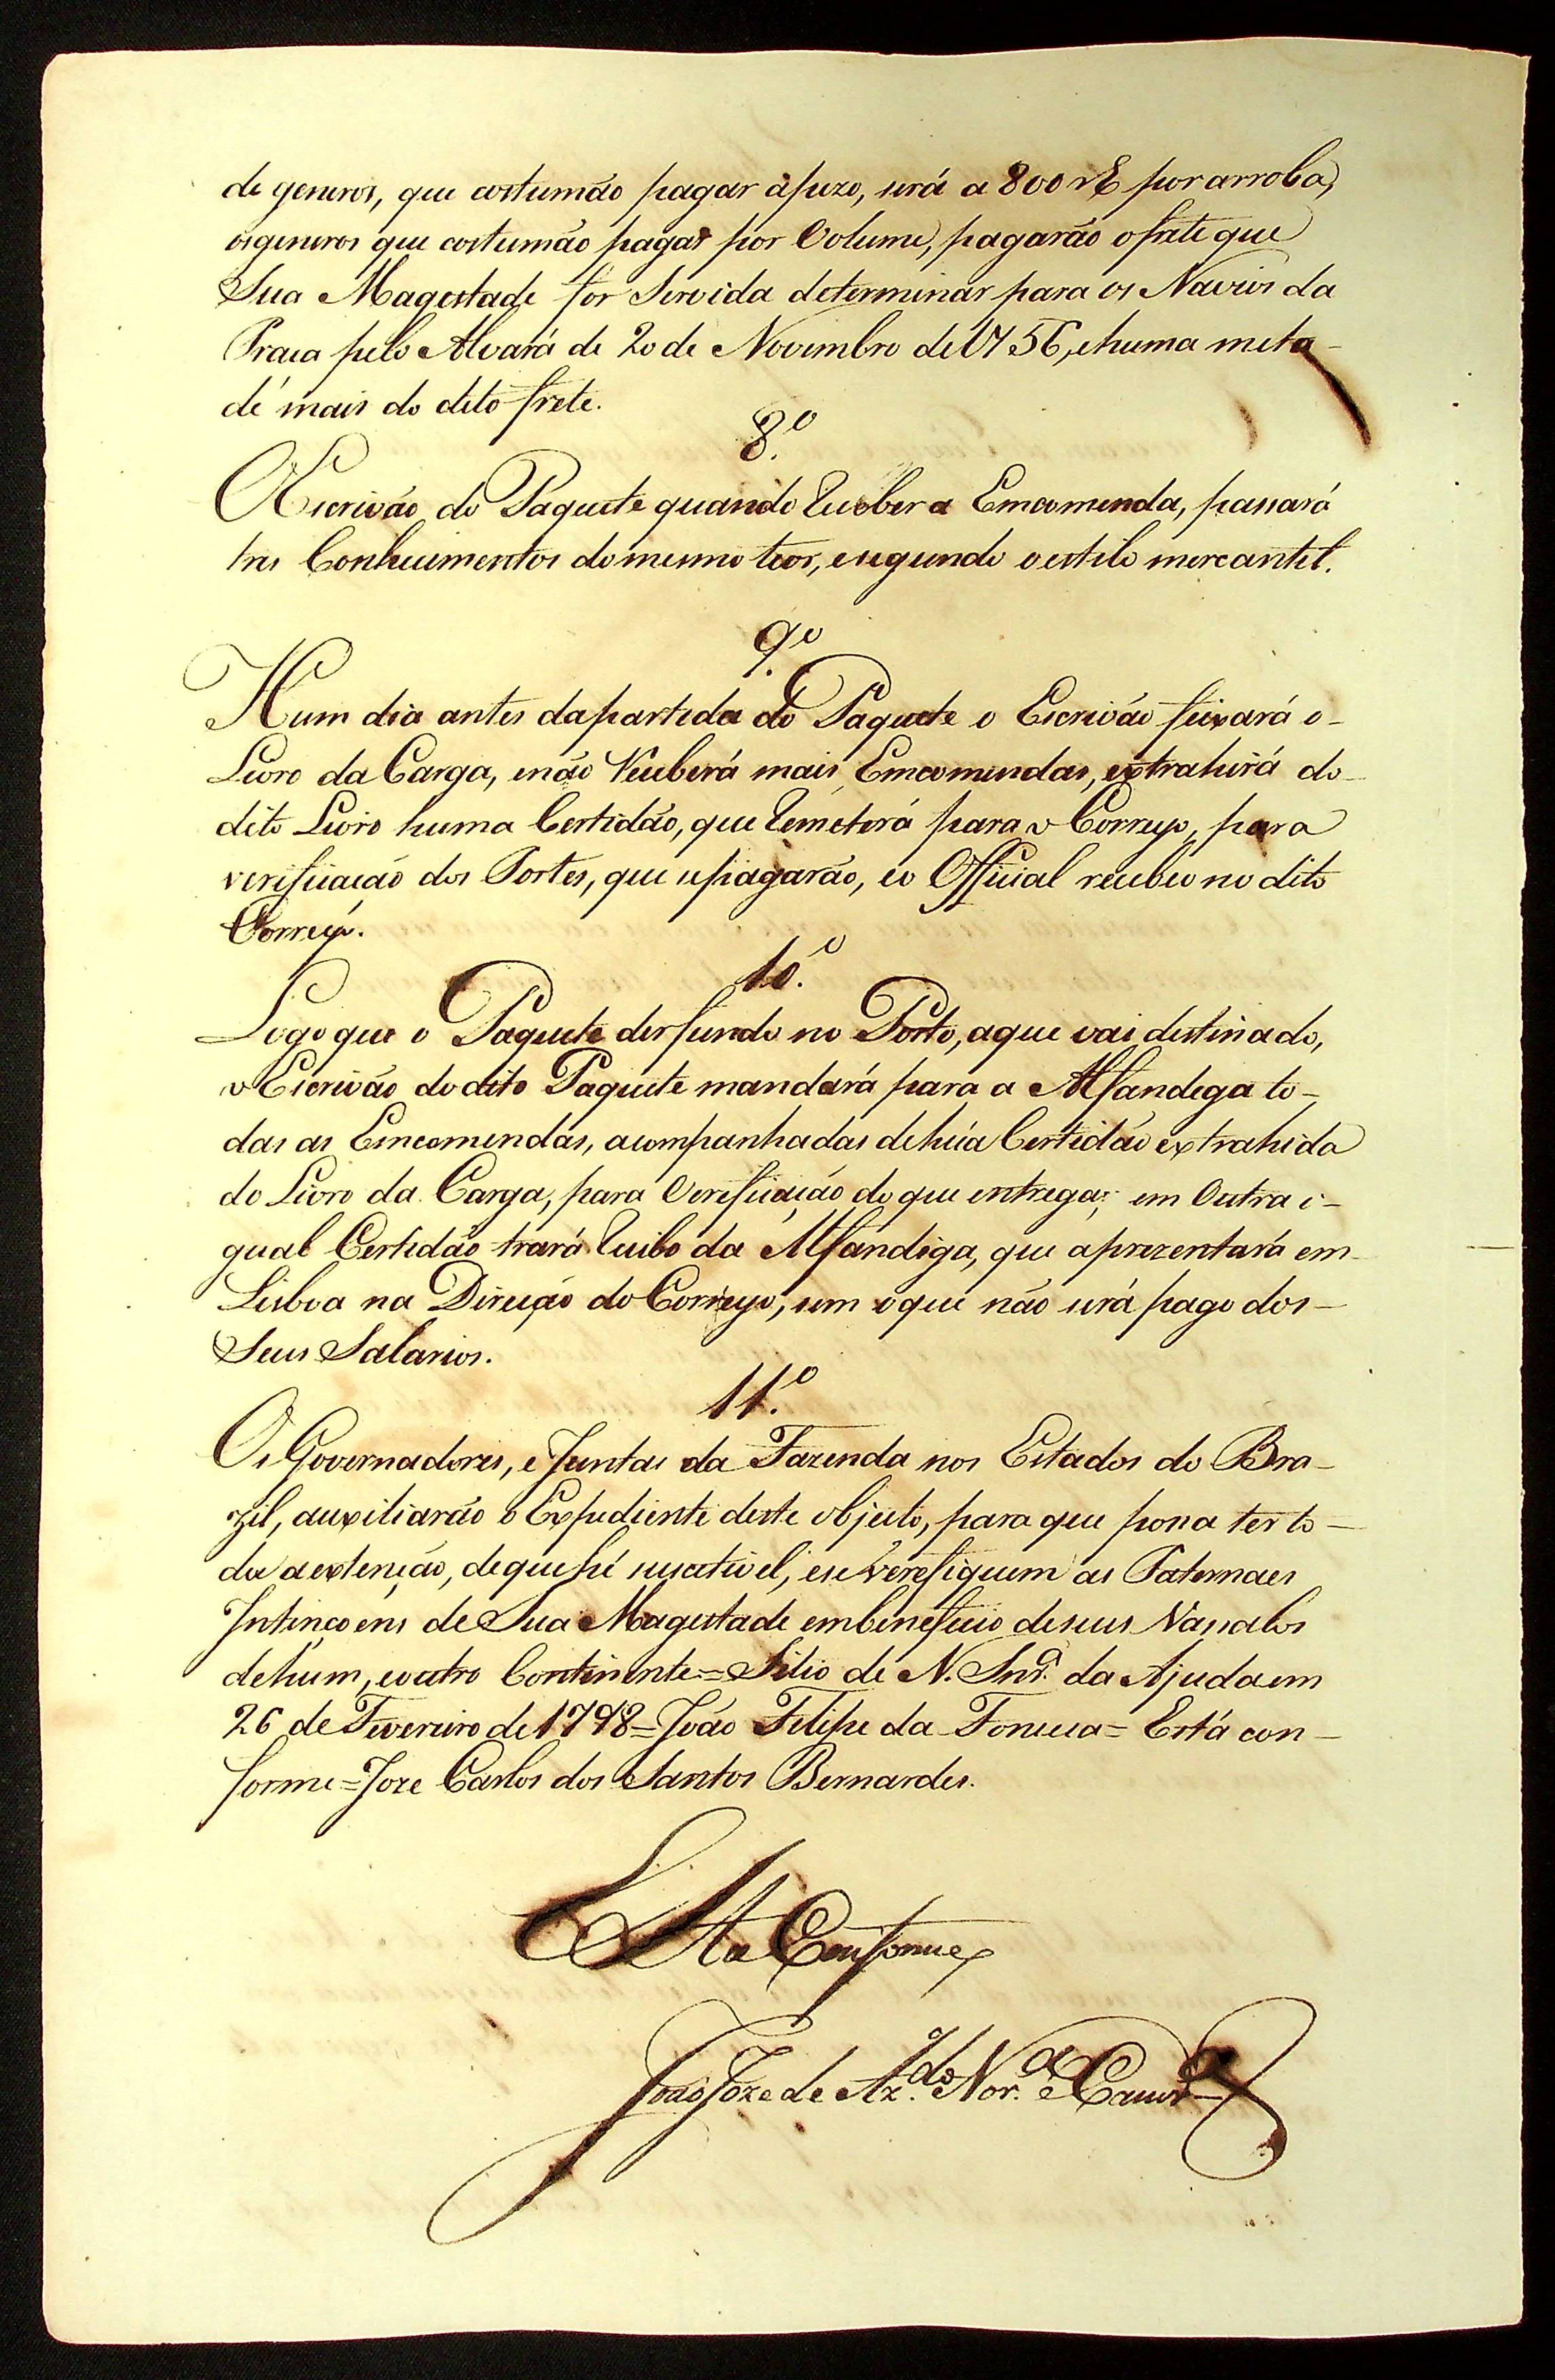 de generos, que costumão pagar apezo, será a 800 r.s por arroba,
os generos que costumão pagar por Volume, pagarão o frete que
Sua Magestade for Servida determinar para os Navios da
Praça pelo Alvará de 20 de Novembro de 1756, e huma meta-
de mais do dito frete.
8.º
O Escrivão do Paquete quando receber a Emcomenda, passará
tres Conhecimentos do mesmo teor, e segundo o estilo mercantil.
9.º
Hum dia antes da partida do Paquete o Escrivão feixará o
Livro da Carga, e não receberá mais Emcomendas, extrahirá do
dito Livro huma Certidão, que remeterá para o Correyo, para
verificação dos Portes, que se pagarão, e o Official recebeo no dito
Correyo.
10.º
Logo que o Paquete der fundo no Porto, a que vai destinado,
o Escrivão do dito Paquete mandará para a Alfandega to-
das as Emcomendas, acompanhadas de húa Certidão extrahida
do Livro da Carga, para Verificação do que entrega; em Outra i-
gual Certidão trará recibo da Alfandega, que aprezentará em
Lisboa na Direcção do Correyo, sem o que não será pago dos
Seus Salarios.
11.º
Os Governadores, e Juntas da Fazenda nos Estados do Bra-
zil, auxiliarão o Expediente deste objecto, para que possa ter to-
da a extenção, de que hé suscetivel, e se verefiquem as Paternaes
Intençoens de Sua Magestade em beneficio de seus Vassalos
de hum, e outro Continente = Sitio de N. Snr.ª da Ajuda em
26 de Fevereiro de 1798 = João Filipe da Fonseca = Está con-
forme = Joze Carlos dos Santos Bernardes.
Está Conforme
João Joze de Az.do Nor.ª e